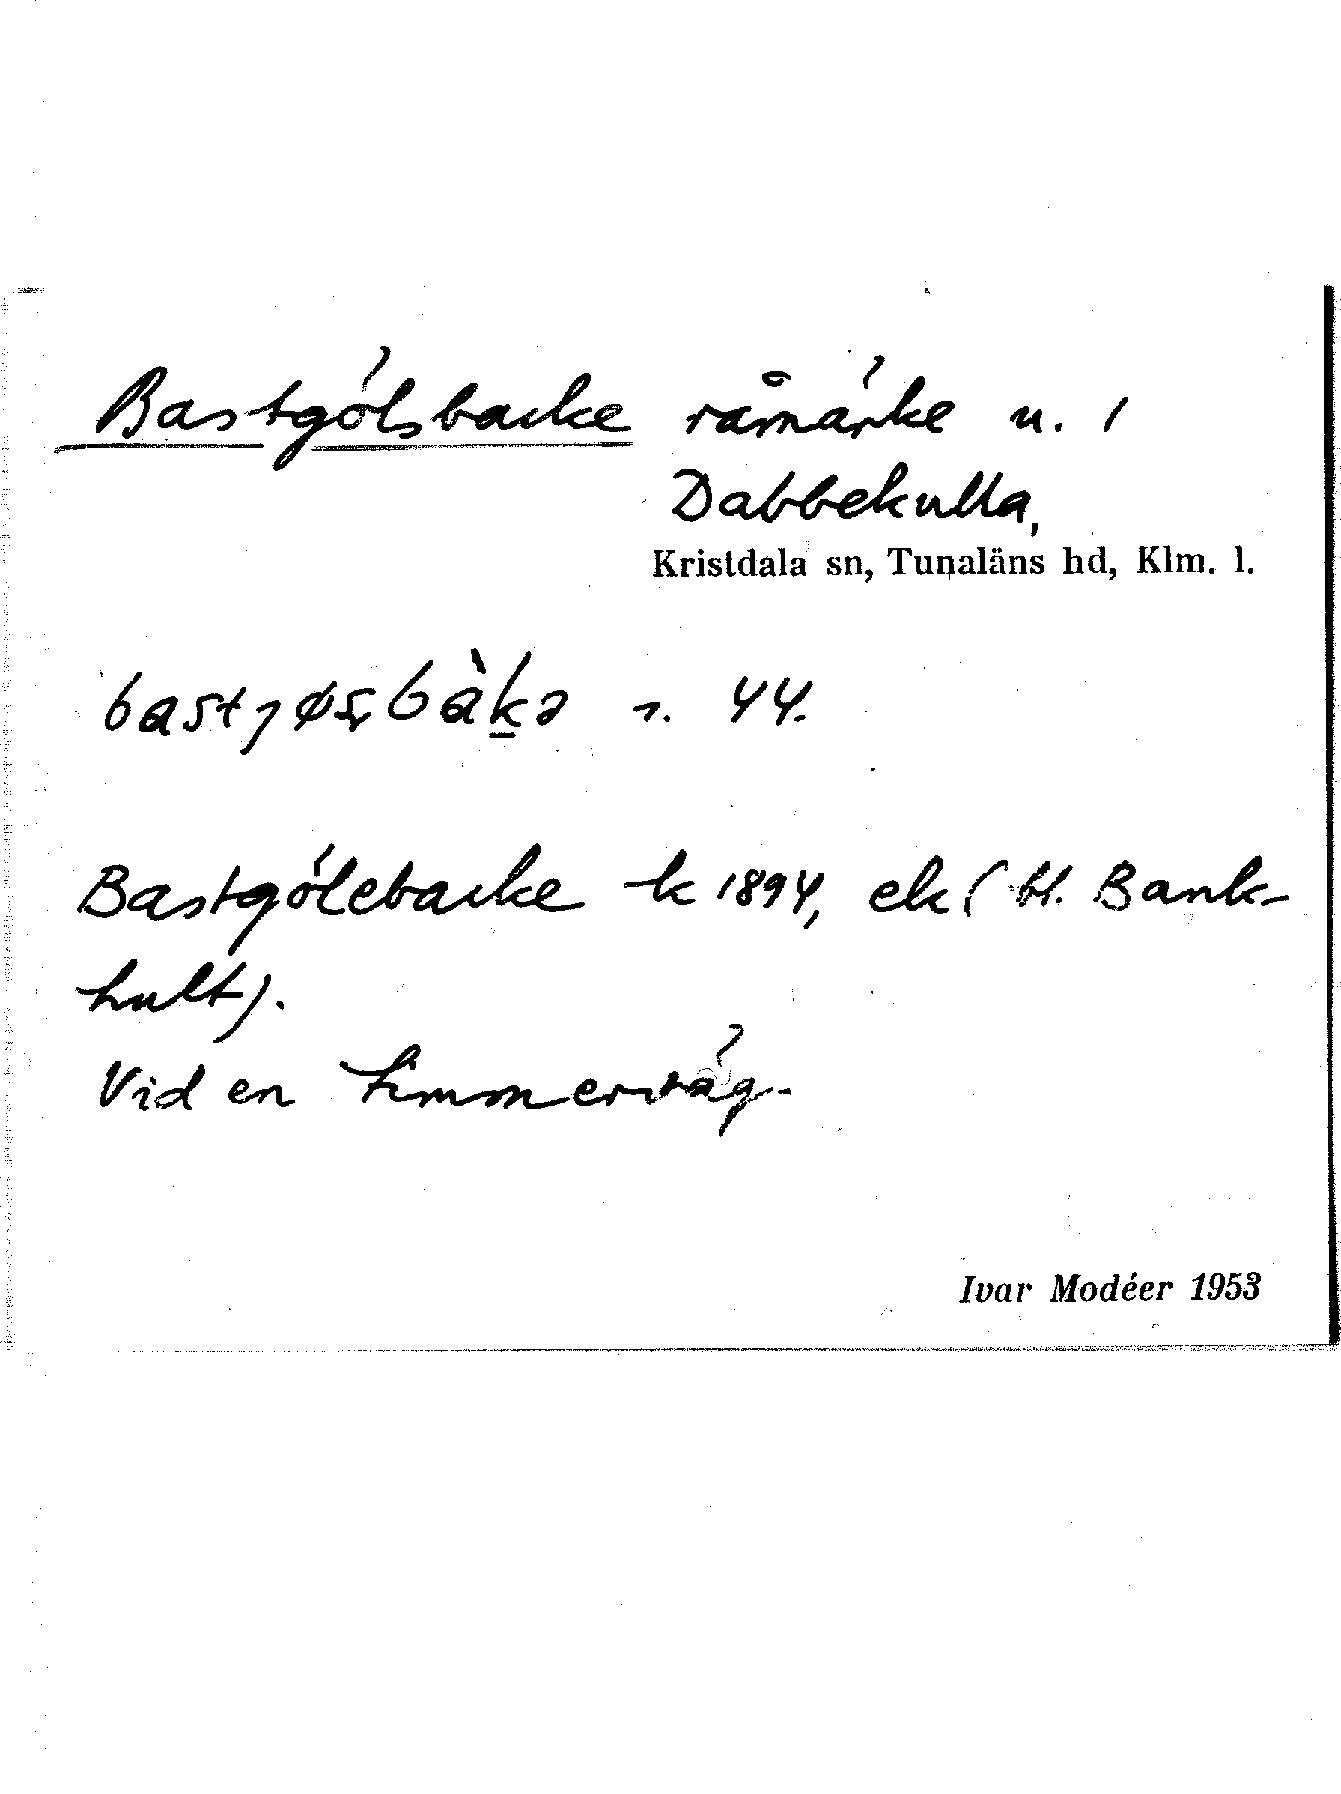 Bastgölsbacke råmärke u. 1
Dabbekulla,
Kristdala sn, Tunaläns hd, Klm. l.
bastjøʂbàkə r. 44.
Bastgölebacke k 1894, ek (bl. Bank-
hult).
Vid en timmerväg.
Ivar Modéer 1953